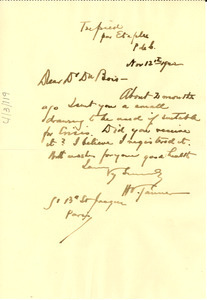 Trepied
par Etaples
P de C.
Nov 12th
Dear Dr Du Bois—
About 2 months
ago I sent you a small
drawing to be used if suitable
for Crisis. Did you receive
it? I believe I registered it.
With wishes for your good health
I am
Very Sincerely
H. O. Tanner
Bd St Jacques
Paris